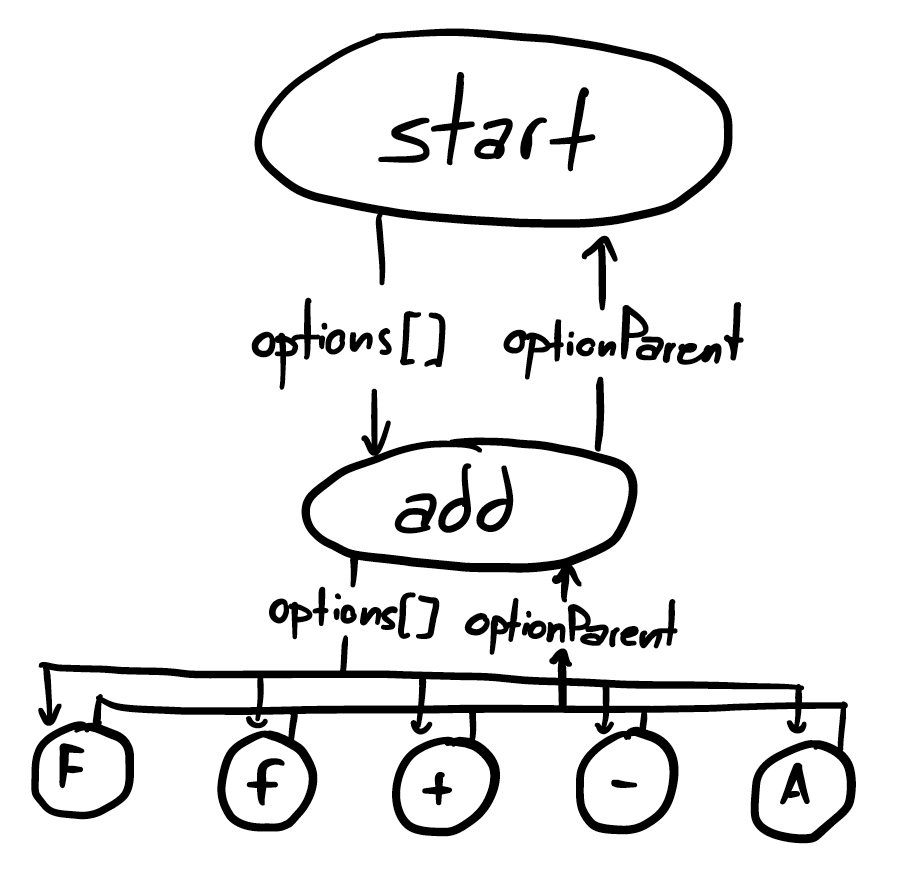 start
options[] optionParent
add
options[] optionParent
F f + - A